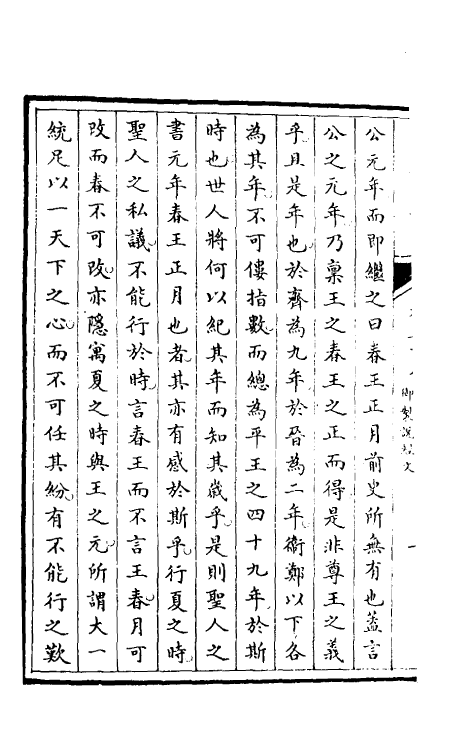 御製說經文
公元年而即繼之曰春王正月前史所無有也蓋言
公之元年乃稟王之春王之正而得是非尊王之義
乎且是年也於齊為九年於晉為二年衛鄭以下各
為其年不可僂指數而總為平王之四十九年於斯
時也世人將何以紀其年而知其歲乎是則聖人之
書元年春王正月也者其亦有感於斯乎行夏之時
聖人之私議不能行於時言春王而不言王春月可
改而春不可改亦隱寓夏之時與王之元所謂大一
統足以一天下之心而不可任其紛有不能行之歎